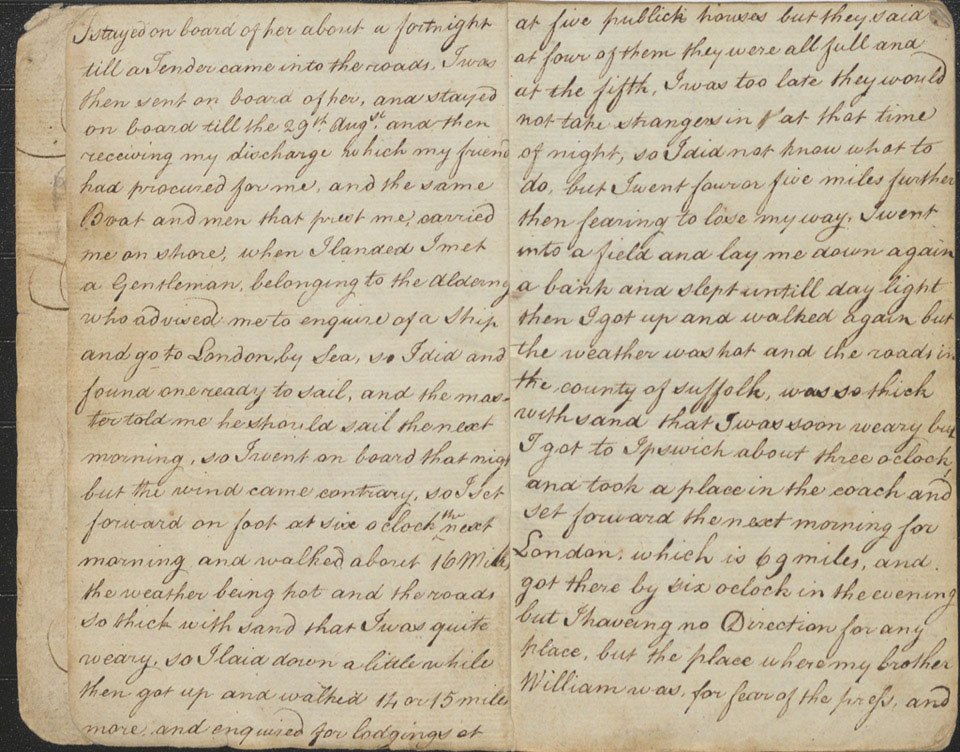 I stayed on board of her about a fortnight
till a Tender came into the roads, I was
then sent on board of her, and stayed
on board till the 29th Augst. and then
receiving my discharge which my friend
had procured for me, and the same
Boat and men that prest me, carried
me on shore, when I landed I met
a Gentleman, belonging to the Alderny
who advised me to enquire of a Ship
and go to London, by Sea, so I did and
found one ready to sail, and the mas-
ter told me he should sail the next
morning, so I went on board that nig
but the wind came contrary, so I set
forward on foot at six o clock the next
morning and walked about 16 Miles
the weather being hot and the roads
so thick with sand that I was quite
weary, so I laid down a little while
then got up and walked 14 or 15 miles
more, and enquired for lodgings at
at five publick houses but they said
at four of them they were all full and
at the fifth, I was too late they would
not take strangers in at that time
of night, so I did not know what to
do, but I went four or five miles further
then fearing to lose my way, I went
into a field and lay me down again
a bank and slept untill day light
then I got up and walked again but
the weather was hot and the roads in
the county of suffolk, was so thick
with sand that I was soon weary but
I got to Ipswich about three oclock,
and took a place in the coach and
set forward the next morning for
London, which is 69 miles, and
got there by six oclock in the evening
but I haveing no Direction for any
place, but the place where my brother
William was, for fear of the press, and